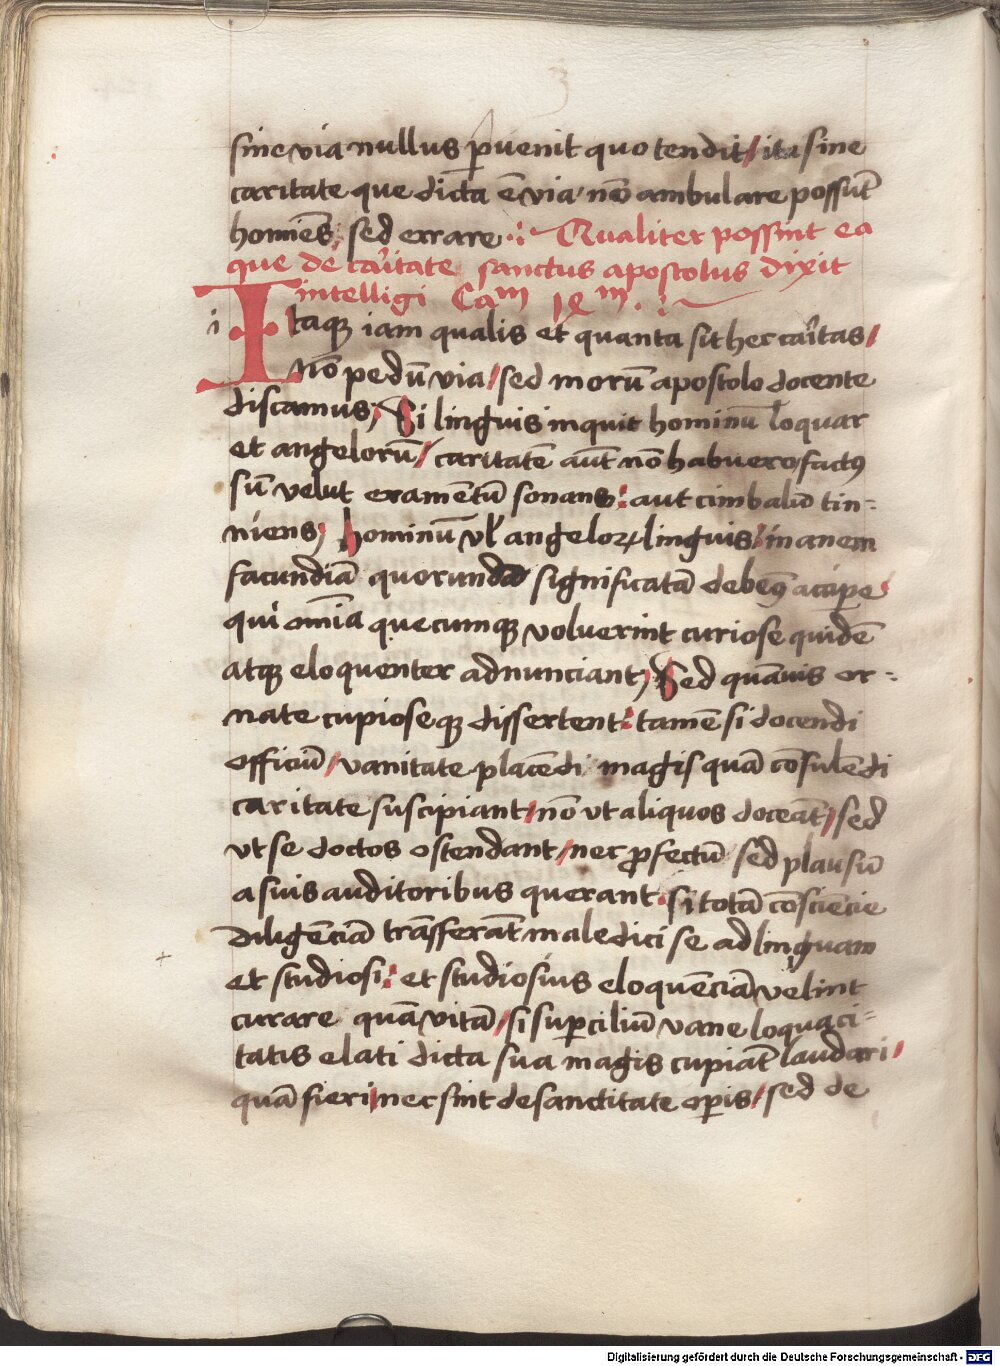 sine via nullus ꝑuenit quo tendit / ita sine
caritate que dicta ē via / nō ambulare possūt
homīes, sed errare ⁖ Qualiter possint ea
que de caꝛ̄itate sanctus apostolus dixit
intelligi Caᵐ
i Itaqꝫ iam qualis et quanta sit hec caꝛ̄itas /
Nō pedū via / sed morū apostolo docente
discamus; Si linguis inquit hominū loquar
et angelorū / caritatē aūt nō habuero factꝰ
sū velut eramētū sonans: aut cimbalū tin-
niens; hominū vl̄ angeloꝝ linguis / inanem
facundiā quorundā significatā debemꝰ accipe
qui oīnia quecumqꝫ voluerint curiose quidē
atqꝫ eloquenter adnunciant; Sed quāuis or-
nate cupioseqꝫ dissertent: tamē si docendi
officiū / vanitate placēdi magis quā cōsulēdi
caritate suscipiant / nō vt aliquos doceāt / sed
vt se doctos ostendant / nec ꝓfectū sed plausū
a suis auditoribus querant. si totā cōsciēcie
diligēciā trāsferāt maledici se ad linguam
et studiosi: et studiosius eloquēciā velint
curare quā vitā / si suꝑciliū vane loquaci-
tatis elati dicta sua magis cupiāt laudari /
quā fieri / nec sint de sanctitate oꝑis / sed de
Digitalisierung gefördert durch die Deutsche Forschungsgemeinschaft - DFG